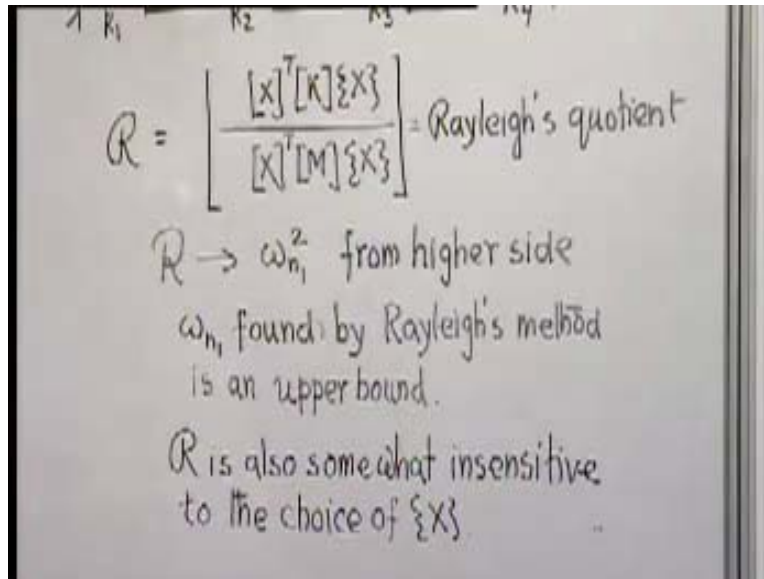 K₁ K₂ K₃ K₄
R = [X]ᵀ[K]{X} / [X]ᵀ[M]{X} = Rayleigh's quotient
R → ωₙ₁² from higher side
ωₙ₁ found by Rayleigh's method
is an upper bound.
R is also somewhat insensitive
to the choice of {X}